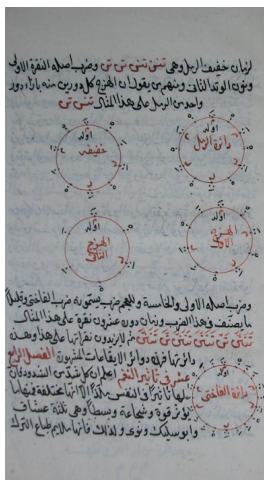 لزمان خفيف الرمل وهي تنن تنن تن تن وضرب اصله النقرة الاولى
ونون الوتد الثاني ومنهم من يقول ان الهزج كل دورين منه بازاء دور
واحد من الرمل على هذا المثال تنن تن
اوله
دائرة الرمل
اوله
خفيفه
اوله
الهزج الاول
اوله
الهزج الثاني
وضرب اصله الاولى والخامسة وللعجم ضرب يسمونه ضرب الفاختي وقليلاً
ما يصنف في هذا الضرب وزمان دوره عشرون نقرة على هذا المثال
ثم لا يزيدون نقراتها على هذا وهذه
دائرتها فهذه دوائر الايقاعات المشهورة الفصل الرابع
عشر في تاثير النغم اعلم ان كل شد من الشدود فان
لها تاثيرا في النفس ملذا الا انها مختلفة فمنها ما
يؤثر قوة وشجاعة وبسطا وهي ثلثة عشاق
وابوسليك ونوى ولذلك فانها تلايم طباع الترك
اوله
دائرة الفاختي